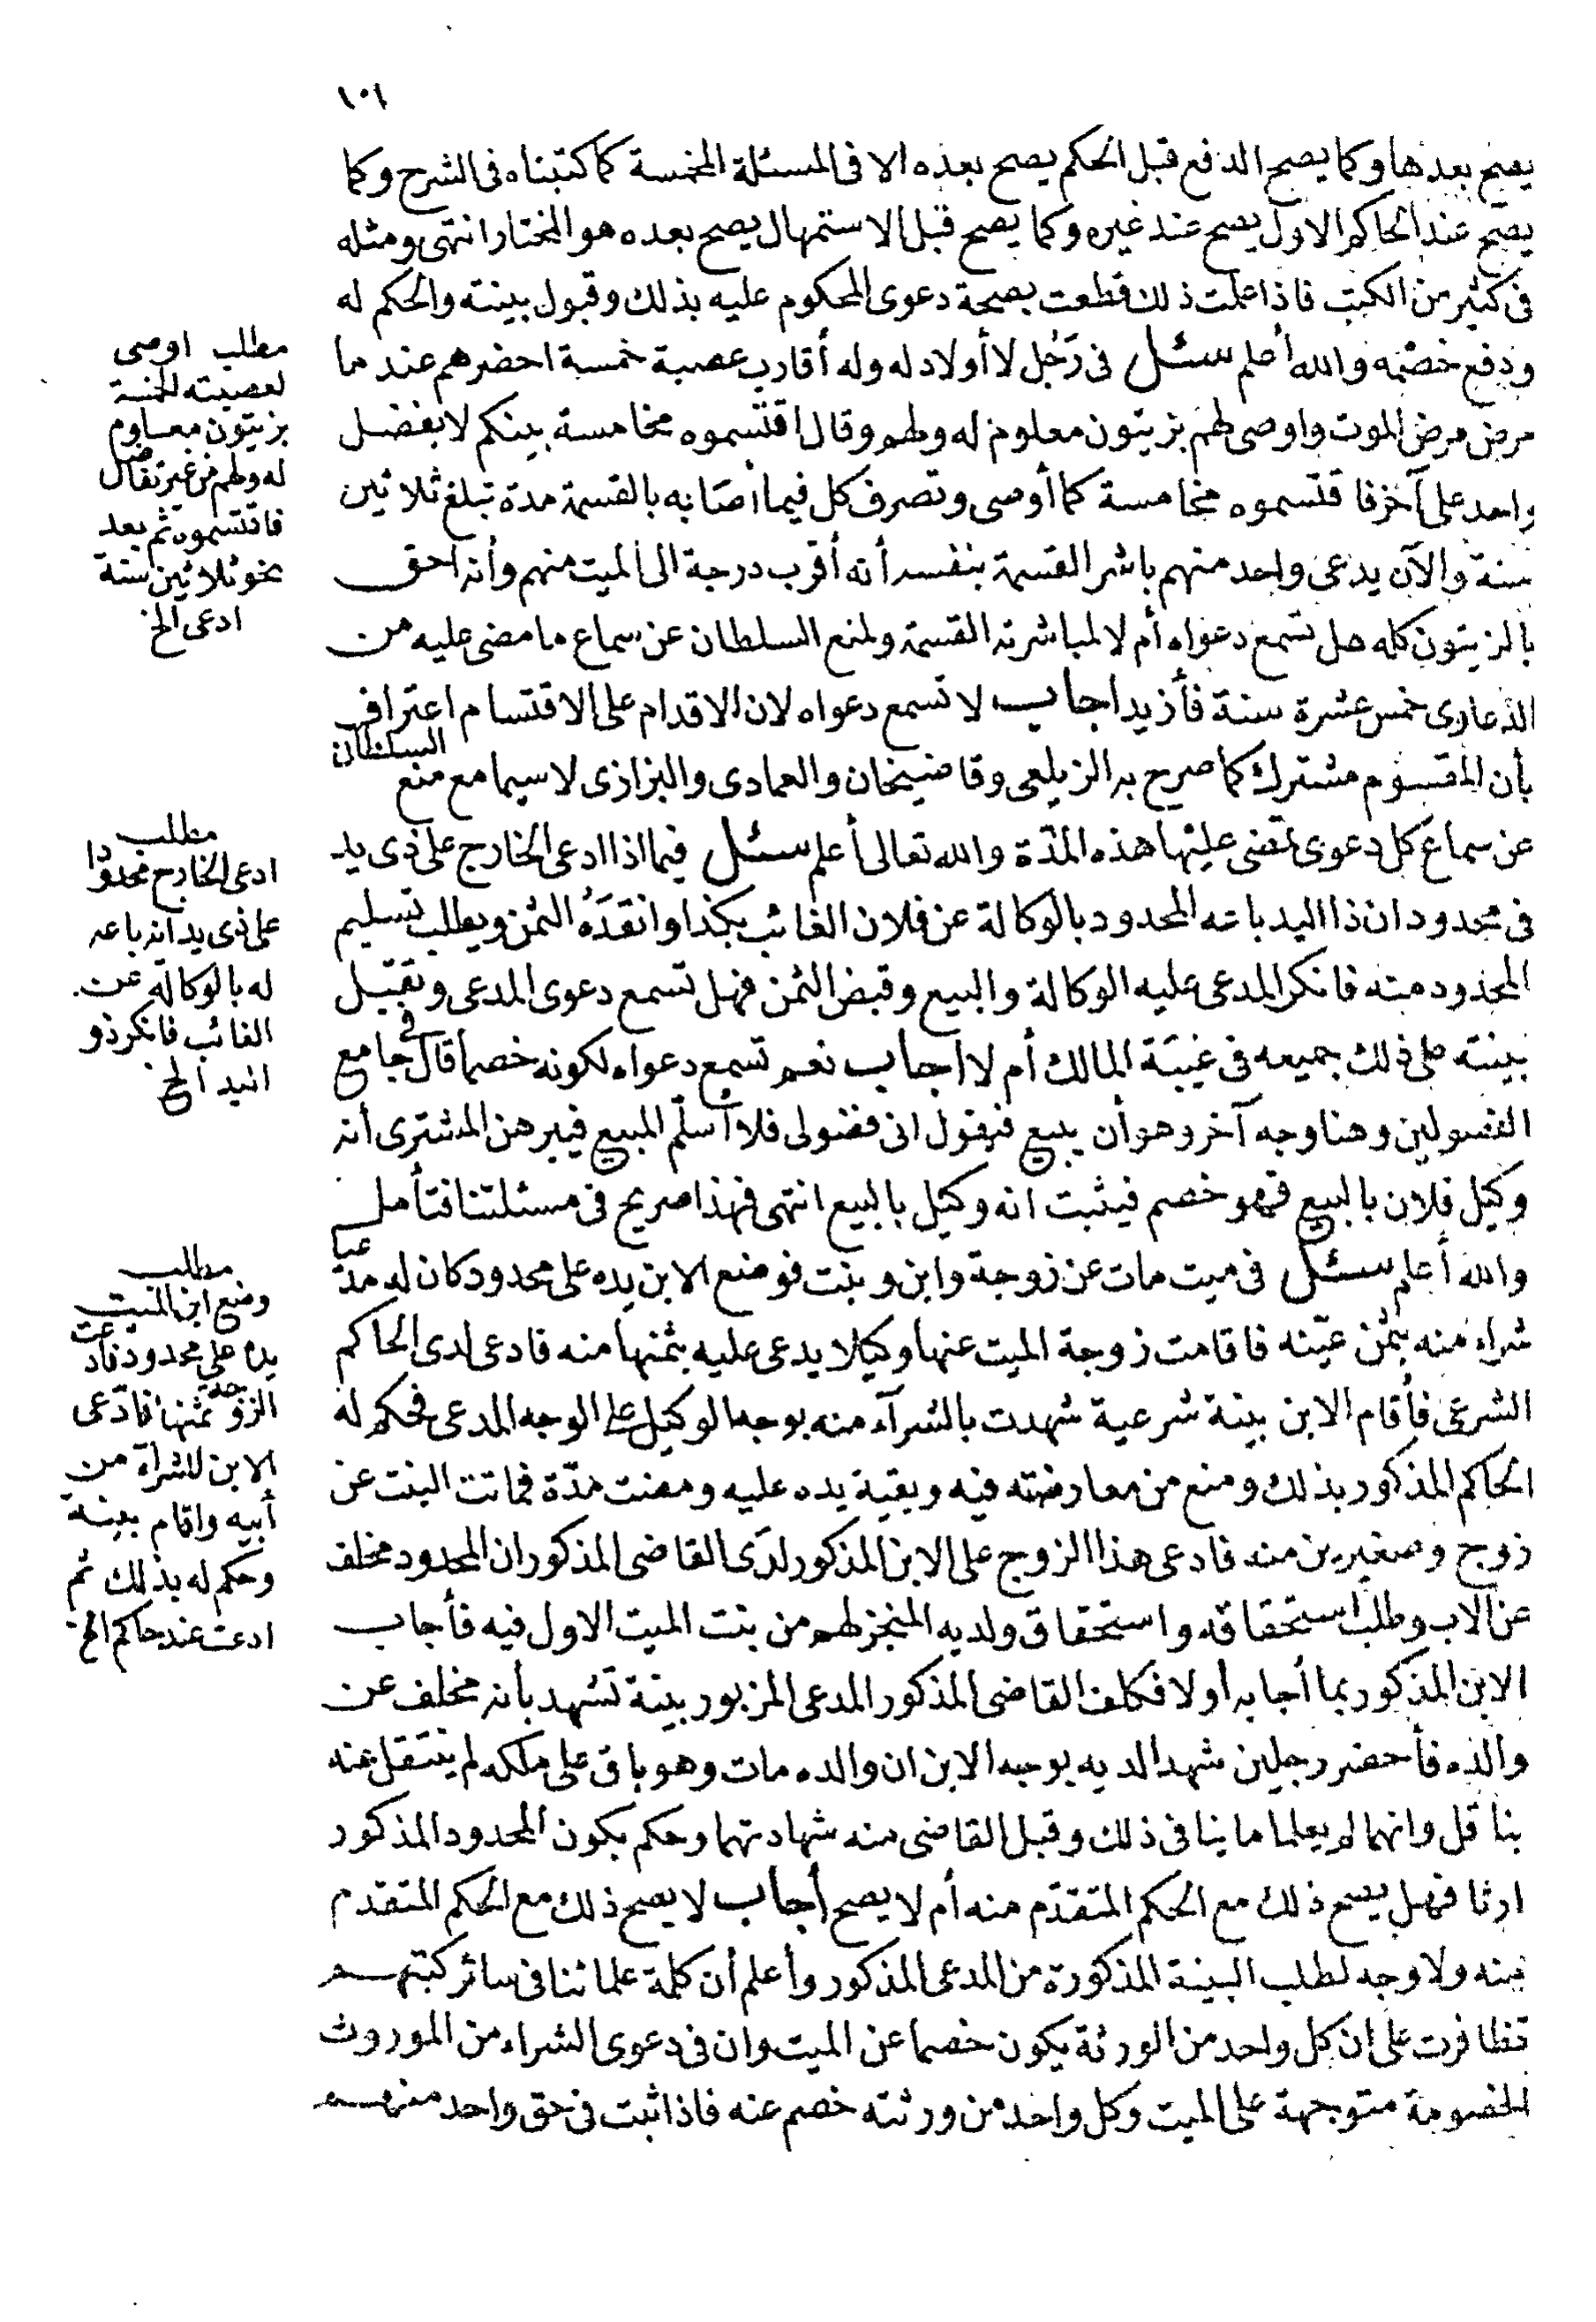 ١٠١
يصح بعدها وكما يصح الدفع قبل الحكم يصح بعده الا فى المسئلة المخمسة كما كتبناه فى الشرح وكما
يصح عند الحاكم الاول يصح عند غيره وكما يصح قبل الاستمهال يصح بعده هو المختار انتهى ومثله
فى كثير من الكتب فاذا علمت ذلك قطعت بصحة دعوى المحكوم عليه بذلك وقبول بينته والحكم له
ودفع خصمه والله أعلم سئل فى رَجُل لا أولاد له وله أقارب عصبة خمسة احضرهم عند ما
مرض مرض الموت واوصى لهم بزيتون معلوم له ولهم وقال اقتسموه مخامسة بينكم لا بفضل
واحد على آخر فاقتسموه مخامسة كما أوصى وتصرف كل فيما أصابه بالقسمة مدة تبلغ ثلاثين
سنة والآن يدعى واحد منهم باشر القسمة بنفسه أنه أقرب درجة الى الميت منهم وأنه احق
بالزيتون كله هل تسمع دعواه أم لا لمباشرته القسمة ولمنع السلطان عن سماع ما مضى عليه من
الدعاوى خمس عشرة سنة فأزيد اجاب لا تسمع دعواه لان الاقدام على الاقتسام اعتراف
بأن المقسوم مشترك كما صرح به الزيلعى وقاضيخان والعمادى والبزازى لا سيما مع منع السلطان
عن سماع كل دعوى تمضى عليها هذه المدّة والله تعالى أعلم سئل فيما اذا ادعى الخارج على ذى يد
فى محدود ان ذا اليد باعه المحدود بالوكالة عن فلان الغائب بكذا وانقدَهُ الثمن ويطلب تسليم
المحدود منه فانكر المدعى عليه الوكالة والبيع وقبض الثمن فهل تسمع دعوى المدعى وتقبل
بينته على ذلك جميعه فى غيبَة المالك أم لا اجاب نعم تسمع دعواه لكونه خصما قال فى جامع
الفصولين وهنا وجه آخر وهو أن يبيع فيقول انى فضولى فلا أسلّم المبيع فيبرهن المشترى أنه
وكيل فلان بالبيع فهو خصم فيثبت انه وكيل بالبيع انتهى فهذا صريح فى مسئلتنا فتأمل
والله أعلم سئل فى ميت مات عن زوجة وابن وبنت فوضع الابن يده على محدود كان له مدّعيا
شراء منه بثمن عيّنه فاقامت زوجة الميت عنها وكيلا يدعى عليه بثمنها منه فادعى لدى الحاكم
الشرعى فأقام الابن بينة شرعية شهدت بالشرآء منه بوجه الوكيل على الوجه المدعى فحكم له
الحاكم المذكور بذلك ومنع من معارضته فيه وبقية يده عليه ومضت مدّة فماتت البنت عن
زوج وصغيرين منه فادعى هذا الزوج على الابن المذكور لدَى القاضى المذكور ان المحدود مخلف
عن الاب وطلب استحقاقه واستحقاق ولديه المنجز لهم من بنت الميت الاول فيه فأجاب
الابن المذكور بما أجابه أولا فكلف القاضى المذكور المدعى المزبور بينة تشهد بأنه مخلف عن
والده فأحضر رجلين شهدا لديه بوجه الابن ان والده مات وهو باق على ملكه لم ينتقل عنه
بناقل وانهما لم يعلما ما ينافى ذلك وقبل القاضى منه شهادتهما وحكم بكون المحدود المذكور
ارثا فهل يصح ذلك مع الحكم المتقدّم منه أم لا يصح أجاب لا يصح ذلك مع الحكم المتقدم
منه ولا وجه لطلب البينة المذكورة من المدعى المذكور وأعلم أن كلمة علمائنا فى سائر كتبهم
تظافرت على ان كل واحد من الورثة يكون خصما عن الميت وان فى دعوى الشراء من الموروث
الخصومة متوجهة على الميت وكل واحد من ورثته خصم عنه فاذا ثبت فى حق واحد منهم
مطلب اوصى
لعصبته الخمسة
بزيتون معلوم
له ولهم من غير تفاضل
فاقتسموه ثم بعد
نحو ثلاثين سنة
ادعى الخ
مطلب
ادعى الخارج محدودا
على ذى يد انه باعه
له بالوكالة عن
الغائب فانكر ذو
اليد الخ
مطلب
وضع ابن الميت
يده على محدود فادعت
الزوجة بثمنها فادّعى
الابن للشرآء من
أبيه واقام بينة
وحكم له بذلك ثم
ادعت عند حاكم الخ